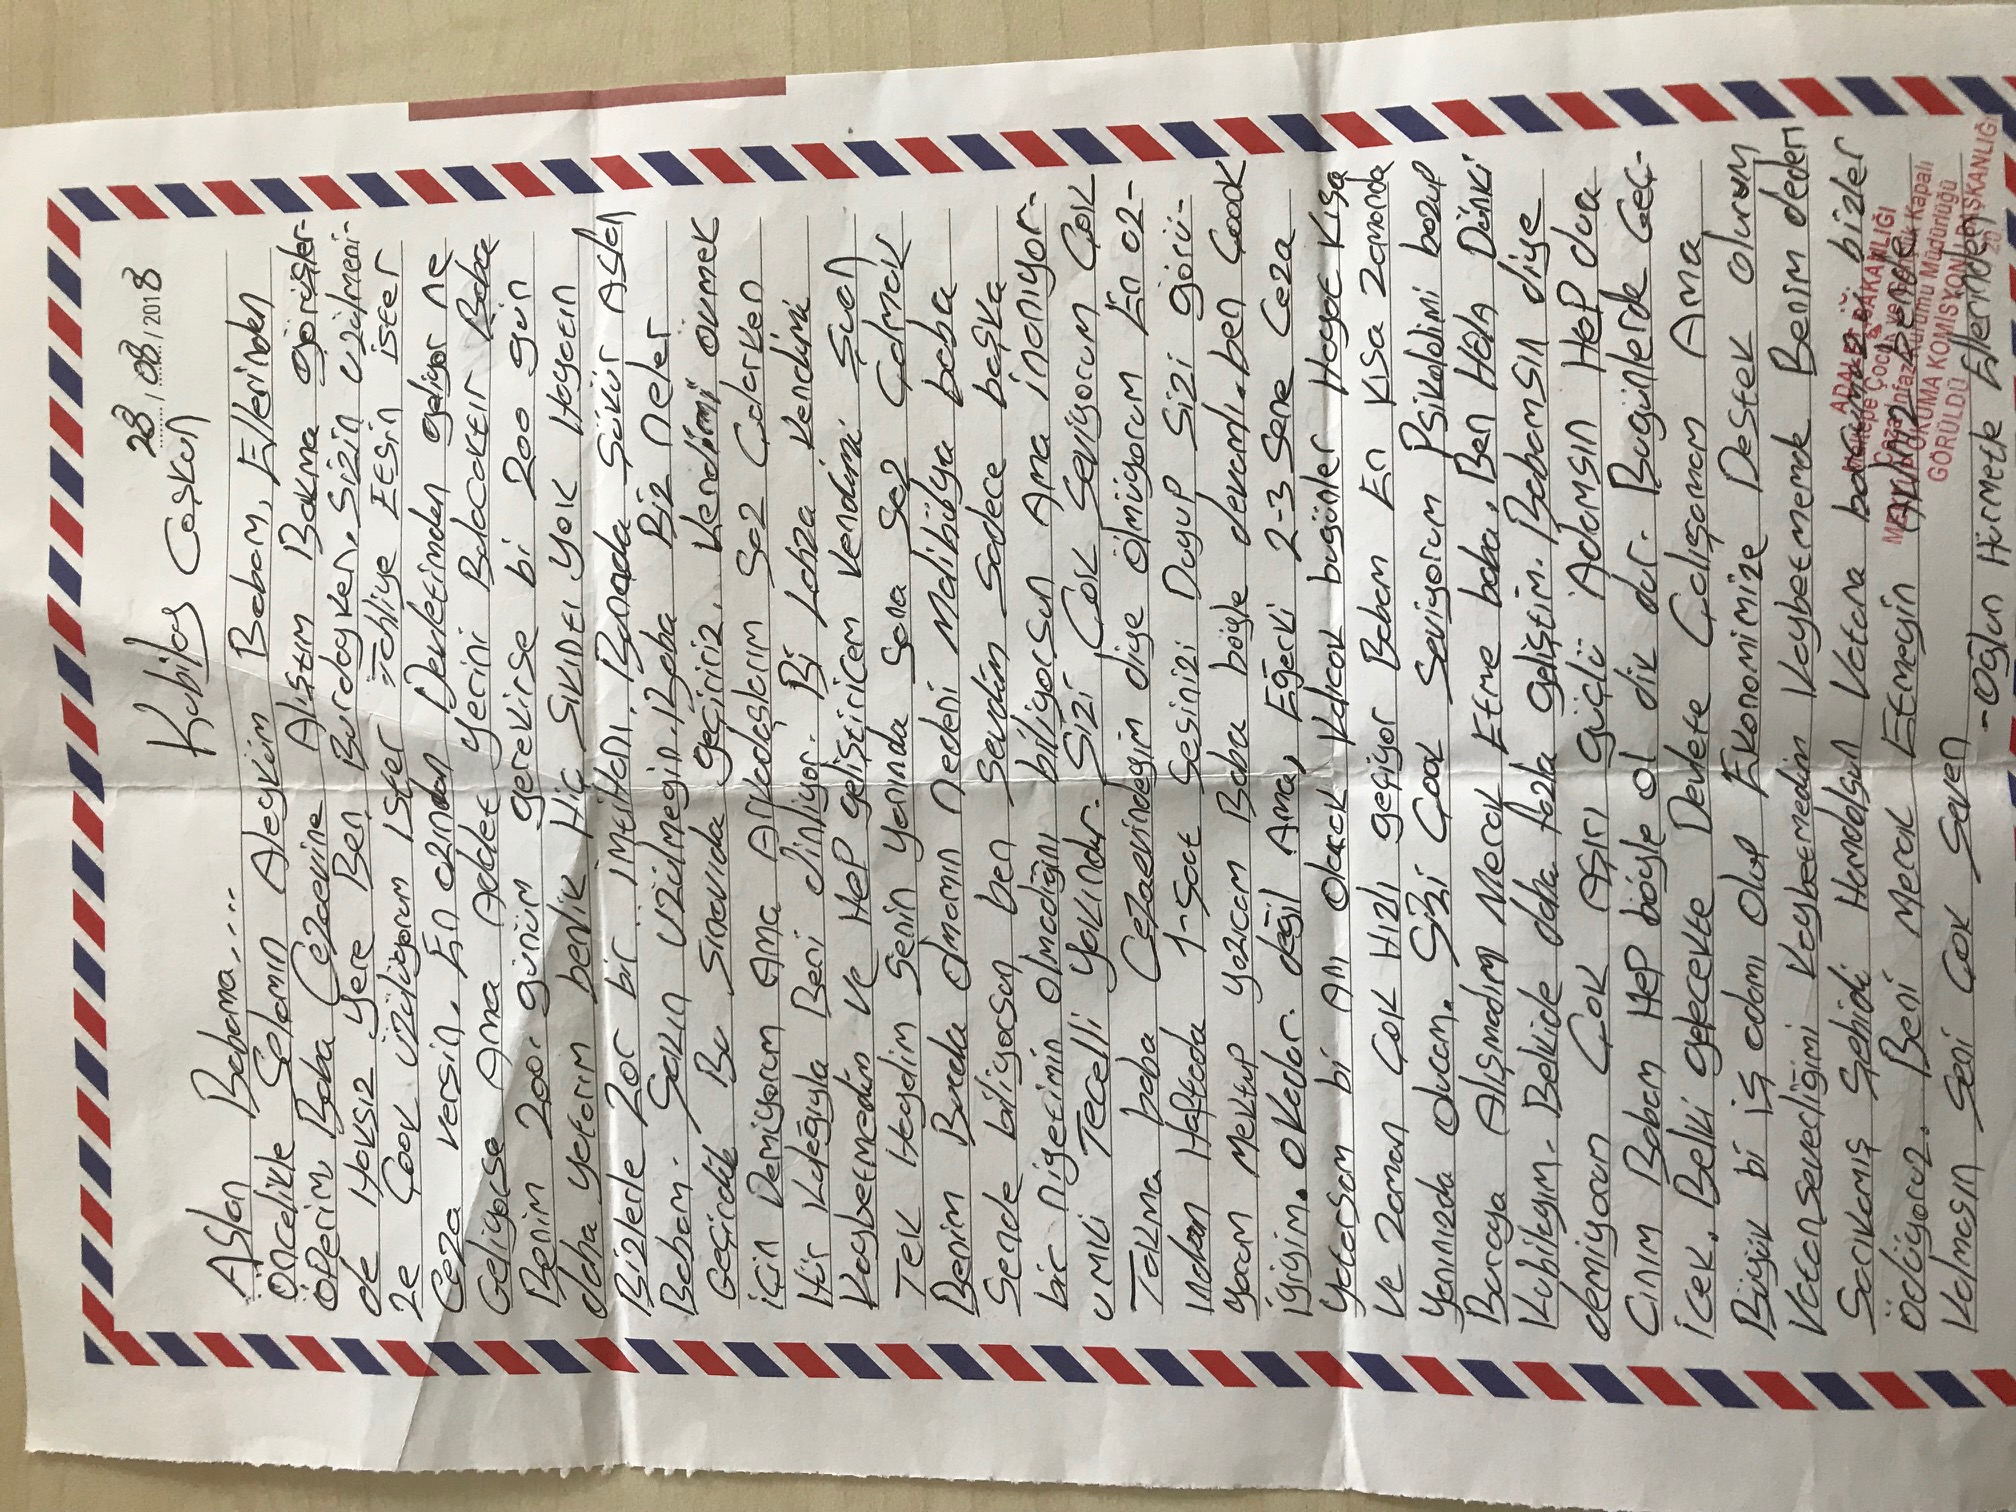 28/08/2018
Kubilay Coşkun
Aslan Babama....
Öncelikle Selamın Aleyküm Babam, Ellerinden
Öperim. Baba Cezaevine Alıştım Bakma görüşler-
de Haksız yere Ben Burdayken. Sizin üzülmeni-
ze Çook üzülüyorum ister Tahliye Etsin ister
Ceza versin. En azından Devletimden geliyor ne
Geliyorse Ama Adalet yerini Bulacaktır Baba
Benim 200. günüm gerekirse bi 200 gün
daha yatarım benlik Hiç Sıkıntı yok Hayatın
Bizlerle zor bir imtihanı. Bunada Şükür Aslan
Babam. Sakın üzülmeyin. Baba Biz neler
Geçirdik Bu Sınavıda geçiririz. Kendimi övmek
için Demiyorum Ama Arkadaşlarım Saz Çalarken
Hür Kulağıyla Beni dinliyor. Bi Lahza Kendimi
Kaybetmedim ve Hep geliştiricem Kendimi Şuan
Tek Hayalim Senin yanında Sana Saz Çalmak
Benim Burda olmamın nedeni Malibülya baba
Sende biliyorsun ben Sevdim Sadece başka
bir niyetimin olmadığını biliyorsun Ama inanıyor-
umki Tecelli yakındır. Sizi Çok Seviyorum Çok
Takma baba Cezaevindeyim diye ölmüyorum En az-
ından Haftada 1-Saat Sesinizi Duyup Sizi görü-
yorum Mektup yazıcam Baba böyle devamlı. ben Çoook
iyiyim. O Kadar değil Ama, Eğerki 2-3 Sene Ceza
yatarsam bi Anı olarak Kalıcak bugünler Hayat Kısa
ve zaman Çok Hızlı geçiyor Babam En Kısa Zamanda
Yanınızda olucam. Sizi Çook Seviyorum Psikolojimi bozup
Buraya Alışmadım Merak Etme baba. Ben Hala Dünki
Kubilayım. Belkide daha fazla geliştim. Babamsın diye
demiyorum Çok Aşırı güçlü Adamsın Hep dua
Canım Babam Hep böyle ol dik dur. Bugünlerde Geç-
icek. Belki gelecekte Devlete Çalışamam Ama
Büyük bi iş adamı olup Ekonomimize Destek olurum
Vatanseverliğimi Kaybetmedim Kaybetmemde Benim dedem
Sarıkamış Şehidi Hamdolsun Vatana borcumuzu bizler
Ödüyoruz. Beni Merak Etmeyin Aklınız bende
Kalmasın Seni Çok Seven
-Oğlun Hürmetle Ellerinden
ADALET BAKANLIĞI
Maltepe Çocuk ve Gençlik Kapalı
Ceza İnfaz Kurumu Müdürlüğü
MEKTUP OKUMA KOMİSYONU BAŞKANLIĞI
GÖRÜLDÜ